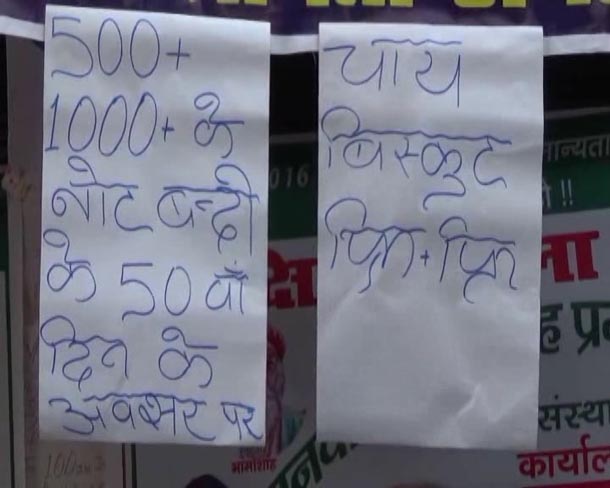 500+
1000+ के
नोट बन्दी
के 50 वाँ
दिन के
अवसर पर
चाय
बिस्कुट
फ्रि + फ्रि
2016
मान्यता
!!
ला
ह प्र
संस्था
कार्याल
भामाशाह